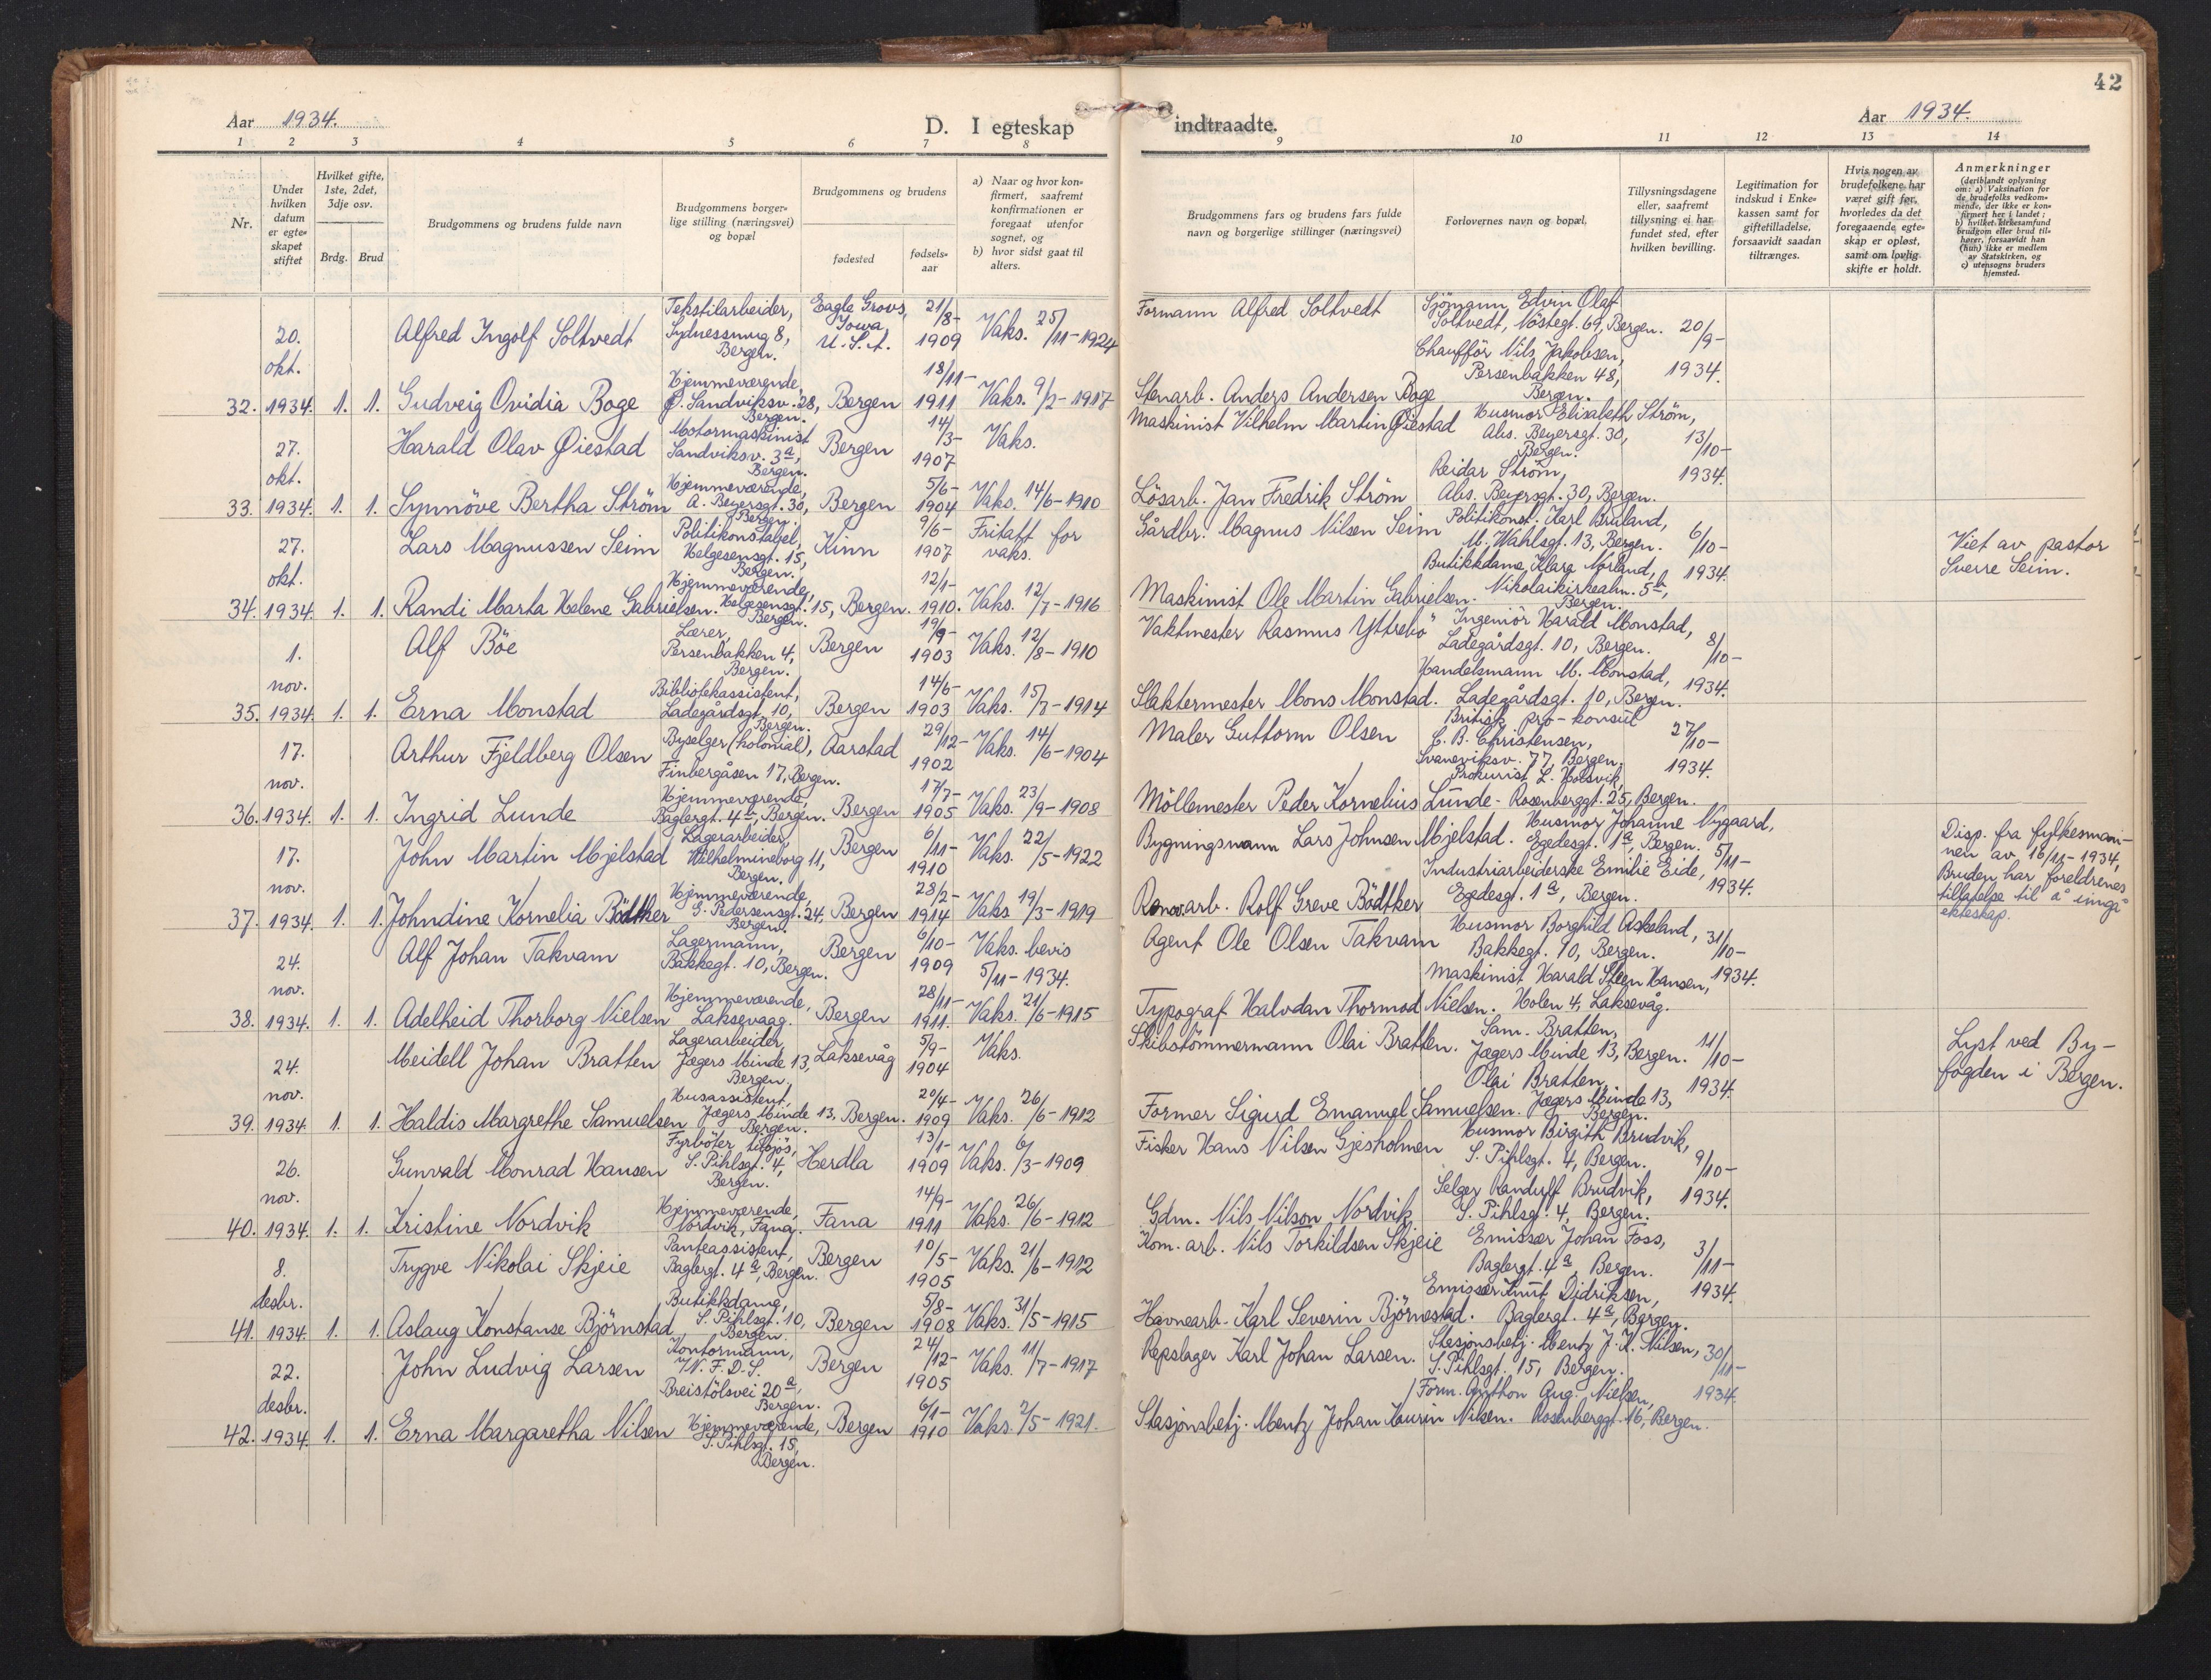 42
Aar 1934.
D. I egteskap indtraadte.
Aar 1934.
1 2 3 4 5 6 7 8 9 10 11 12 13 14
Nr.
Under hvilken datum er egteskapet stiftet
Hvilket gifte, 1ste, 2det, 3dje osv.
Brdg. Brud
Brudgommens og brudens fulde navn
Brudgommens borgerlige stilling (næringsvei) og bopæl
Brudgommens og brudens
fødested
fødselsaar
a) Naar og hvor konfirmert, saafremt konfirmationen er foregaat utenfor sognet, og
b) hvor sidst gaat til alters.
Brudgommens fars og brudens fars fulde navn og borgerlige stillinger (næringsvei)
Forlovernes navn og bopæl.
Tillysningsdagene eller, saafremt tillysning ei har fundet sted, efter hvilken bevilling.
Legitimation for indskud i Enkekassen samt for giftetilladelse, forsaavidt saadan tiltrænges.
Hvis nogen av brudefolkene har været gift før, hvorledes da det foregaaende egteskap er opløst, samt om lovlig skifte er holdt.
Anmerkninger
(deriblandt oplysning om: a) Vaksination for de brudefolks vedkommende, der ikke er konfirmert her i landet; b) hvilket kirkesamfund brudgom eller brud tilhører, forsaavidt han (hun) ikke er medlem av Statskirken, og c) utensogns bruders hjemsted.
32. 20. okt. 1934. 1. 1.
Alfred Ingolf Soltvedt
Tekstilarbeider, Sydnessmug 8, Bergen.
Eagle Grovs, Iowa, U.S.A.
21/8-1909
Vaks. 25/11-1924
Formann Alfred Soltvedt
Sjömann Edvin Olaf Soltvedt, Nöstegt. 69, Bergen.
20/9-1934.
Gudveig Ovidia Boge
Hjemmeværende, Ø. Sandviksv. 28, Bergen.
Bergen
18/11-1911
Vaks. 9/2-1917
Stenarb. Anders Andersen Boge
Chaufför Nils Jakobsen, Persenbakken 48, Bergen.
33. 27. okt. 1934. 1. 1.
Harald Olav Øiestad
Motormaskinist Sandviksv. 3a, Bergen.
Bergen
14/3-1907
Vaks.
Maskinist Vilhelm Martin Øiestad
Husmor Elisabeth Ström, Abs. Beyersgt. 30, Bergen.
13/10-1934.
Synnöve Bertha Ström
Hjemmeværende, A. Beyersgt. 30, Bergen.
Bergen
5/6-1904
Vaks. 14/6-1910
Lösarb. Jan Fredrik Ström
Reidar Ström, Abs. Beyersgt. 30, Bergen.
34. 27. okt. 1934. 1. 1.
Lars Magnussen Seim
Politikonstabel, Helgesensgt. 15, Bergen.
Kinn
9/6-1907
Fritatt for vaks.
Gårdbr. Magnus Nilsen Seim
Politikonst. Karl Bruland, M. Wahlsgt. 13, Bergen.
6/10-1934.
Viet av pastor Sverre Seim.
Randi Marta Helene Gabrielsen.
Hjemmeværende, Helgesensgt. 15, Bergen.
Bergen.
12/1-1910.
Vaks. 12/7-1916
Maskinist Ole Martin Gabrielsen.
Butikkdame Klara Norland, Nikolaikirkealm. 5b, Bergen.
35. 1. nov. 1934. 1. 1.
Alf Böe
Lærer, Persenbakken 4, Bergen.
Bergen
19/9-1903
Vaks. 12/8-1910
Vaktmester Rasmus Yttrebö
Ingeniör Harald Monstad, Ladegårdsgt. 10, Bergen.
8/10-1934.
Erna Monstad
Bibliotekassistent, Ladegårdsgt. 10, Bergen.
Bergen
14/6-1903
Vaks. 15/7-1914
Slaktermester Mons Monstad.
Handelsmann M. Monstad, Ladegårdsgt. 10, Bergen.
36. 17. nov. 1934. 1. 1.
Arthur Fjeldberg Olsen
Byselger (kolonial), Finbergåsen 17, Bergen.
Aarstad
29/12-1902
Vaks. 14/6-1904
Maler Guttorm Olsen
Britisk pro-konsul C. B. Christensen, Svaneviksv. 77, Bergen.
27/10-1934.
Ingrid Lunde
Hjemmeværende, Baglergt. 4a, Bergen.
Bergen
17/7-1905
Vaks. 23/9-1908
Möllemester Peder Kornelius Lunde
Prokurist L. Holsvik, Rosenberggt. 25, Bergen.
37. 17. nov. 1934. 1. 1.
John Martin Mjelstad
Lagerarbeider, Wilhelmineborg 11, Bergen.
Bergen
6/11-1910
Vaks. 22/5-1922
Bygningsmann Lars Johnsen Mjelstad.
Husmor Johanne Nygaard, Egedesgt. 1a, Bergen.
5/11-1934.
Disp. fra fylkesmannen av 16/11-1934, Bruden har foreldrenes tillatelse til å inngå ekteskap.
Johndine Kornelia Bödtker
Hjemmeværende, G. Pedersensgt. 24, Bergen.
Bergen
28/2-1914
Vaks 19/3-1919
Renov.arb. Rolf Greve Bödtker
Industriarbeiderske Emilie Eide, Egedesgt. 1a, Bergen.
38. 24. nov. 1934. 1. 1.
Alf Johan Takvam
Lagermann, Bakkegt. 10, Bergen.
Bergen
6/10-1909
Vaks. bevis 5/11-1934.
Agent Ole Olsen Takvam
Husmor Borghild Askeland, Bakkegt. 10, Bergen.
31/10-1934.
Adelheid Thorborg Nielsen
Hjemmeværende, Laksevaag.
Bergen
28/11-1911.
Vaks. 21/6-1915
Typograf Halvdan Thormod Nielsen.
Maskinist Harald Steen Hansen, Holen 4, Laksevåg.
39. 24. nov. 1934. 1. 1.
Meidell Johan Bratten
Lagerarbeider, Jægers Minde 13, Bergen.
Laksevåg
5/9-1904
Vaks.
Skibstömmermann Olai Bratten.
Sam. Bratten, Jægers Minde 13, Bergen.
11/10-1934.
Lyst ved Byfogden i Bergen.
Haldis Margrethe Samuelsen
Husassistent, Jægers Minde 13, Bergen.
Bergen.
20/4-1909
Vaks. 26/6-1912
Former Sigurd Emanuel Samuelsen.
Olai Bratten, Jægers Minde 13, Bergen.
40. 26. nov. 1934. 1. 1.
Gunvald Monrad Hansen
Fyrböter tilsjös, S. Pihlsgt. 4, Bergen.
Herdla
13/1-1909
Vaks. 6/3-1909
Fisker Hans Nilsen Gjesholmen
Husmor Birgith Brudvik, S. Pihlsgt. 4, Bergen.
9/10-1934.
Kristine Nordvik
Hjemmeværende, Nordvik, Fana.
Fana
14/9-1911
Vaks. 26/6-1912
Gdm. Nils Nilson Nordvik
Selger Randulf Brudvik, S. Pihlsgt. 4, Bergen.
41. 8. desbr. 1934. 1. 1.
Trygve Nikolai Skjeie
Panteassistent, Baglergt. 4a, Bergen.
Bergen
10/5-1905
Vaks. 21/6-1912
Kom. arb. Nils Torkildsen Skjeie
Emissær Johan Foss, Baglergt. 4a, Bergen.
3/11-1934.
Aslaug Konstanse Björnstad
Butikkdame, S. Pihlsgt. 10, Bergen.
Bergen
5/8-1908
Vaks. 31/5-1915
Havnearb. Karl Severin Björnestad.
Emissær Knut Didriksen, Baglergt. 4a, Bergen.
42. 22. desbr. 1934. 1. 1.
John Ludvig Larsen
Kontormann, N.F.D.S. Breistölsvei 20a, Bergen.
Bergen
24/12-1905
Vaks. 11/7-1917
Repslager Karl Johan Larsen.
Stasjonsbetj. Mentz J. K. Nilsen, S. Pihlsgt. 15, Bergen.
30/11-1934.
Erna Margaretha Nilsen
Hjemmeværende, S. Pihlsgt. 15, Bergen.
Bergen
6/1-1910
Vaks. 2/5-1921.
Stasjonsbetj. Mentz Johan Nilsen.
Form. Anthon Aug. Nielsen, Rosenberggt. 16, Bergen.